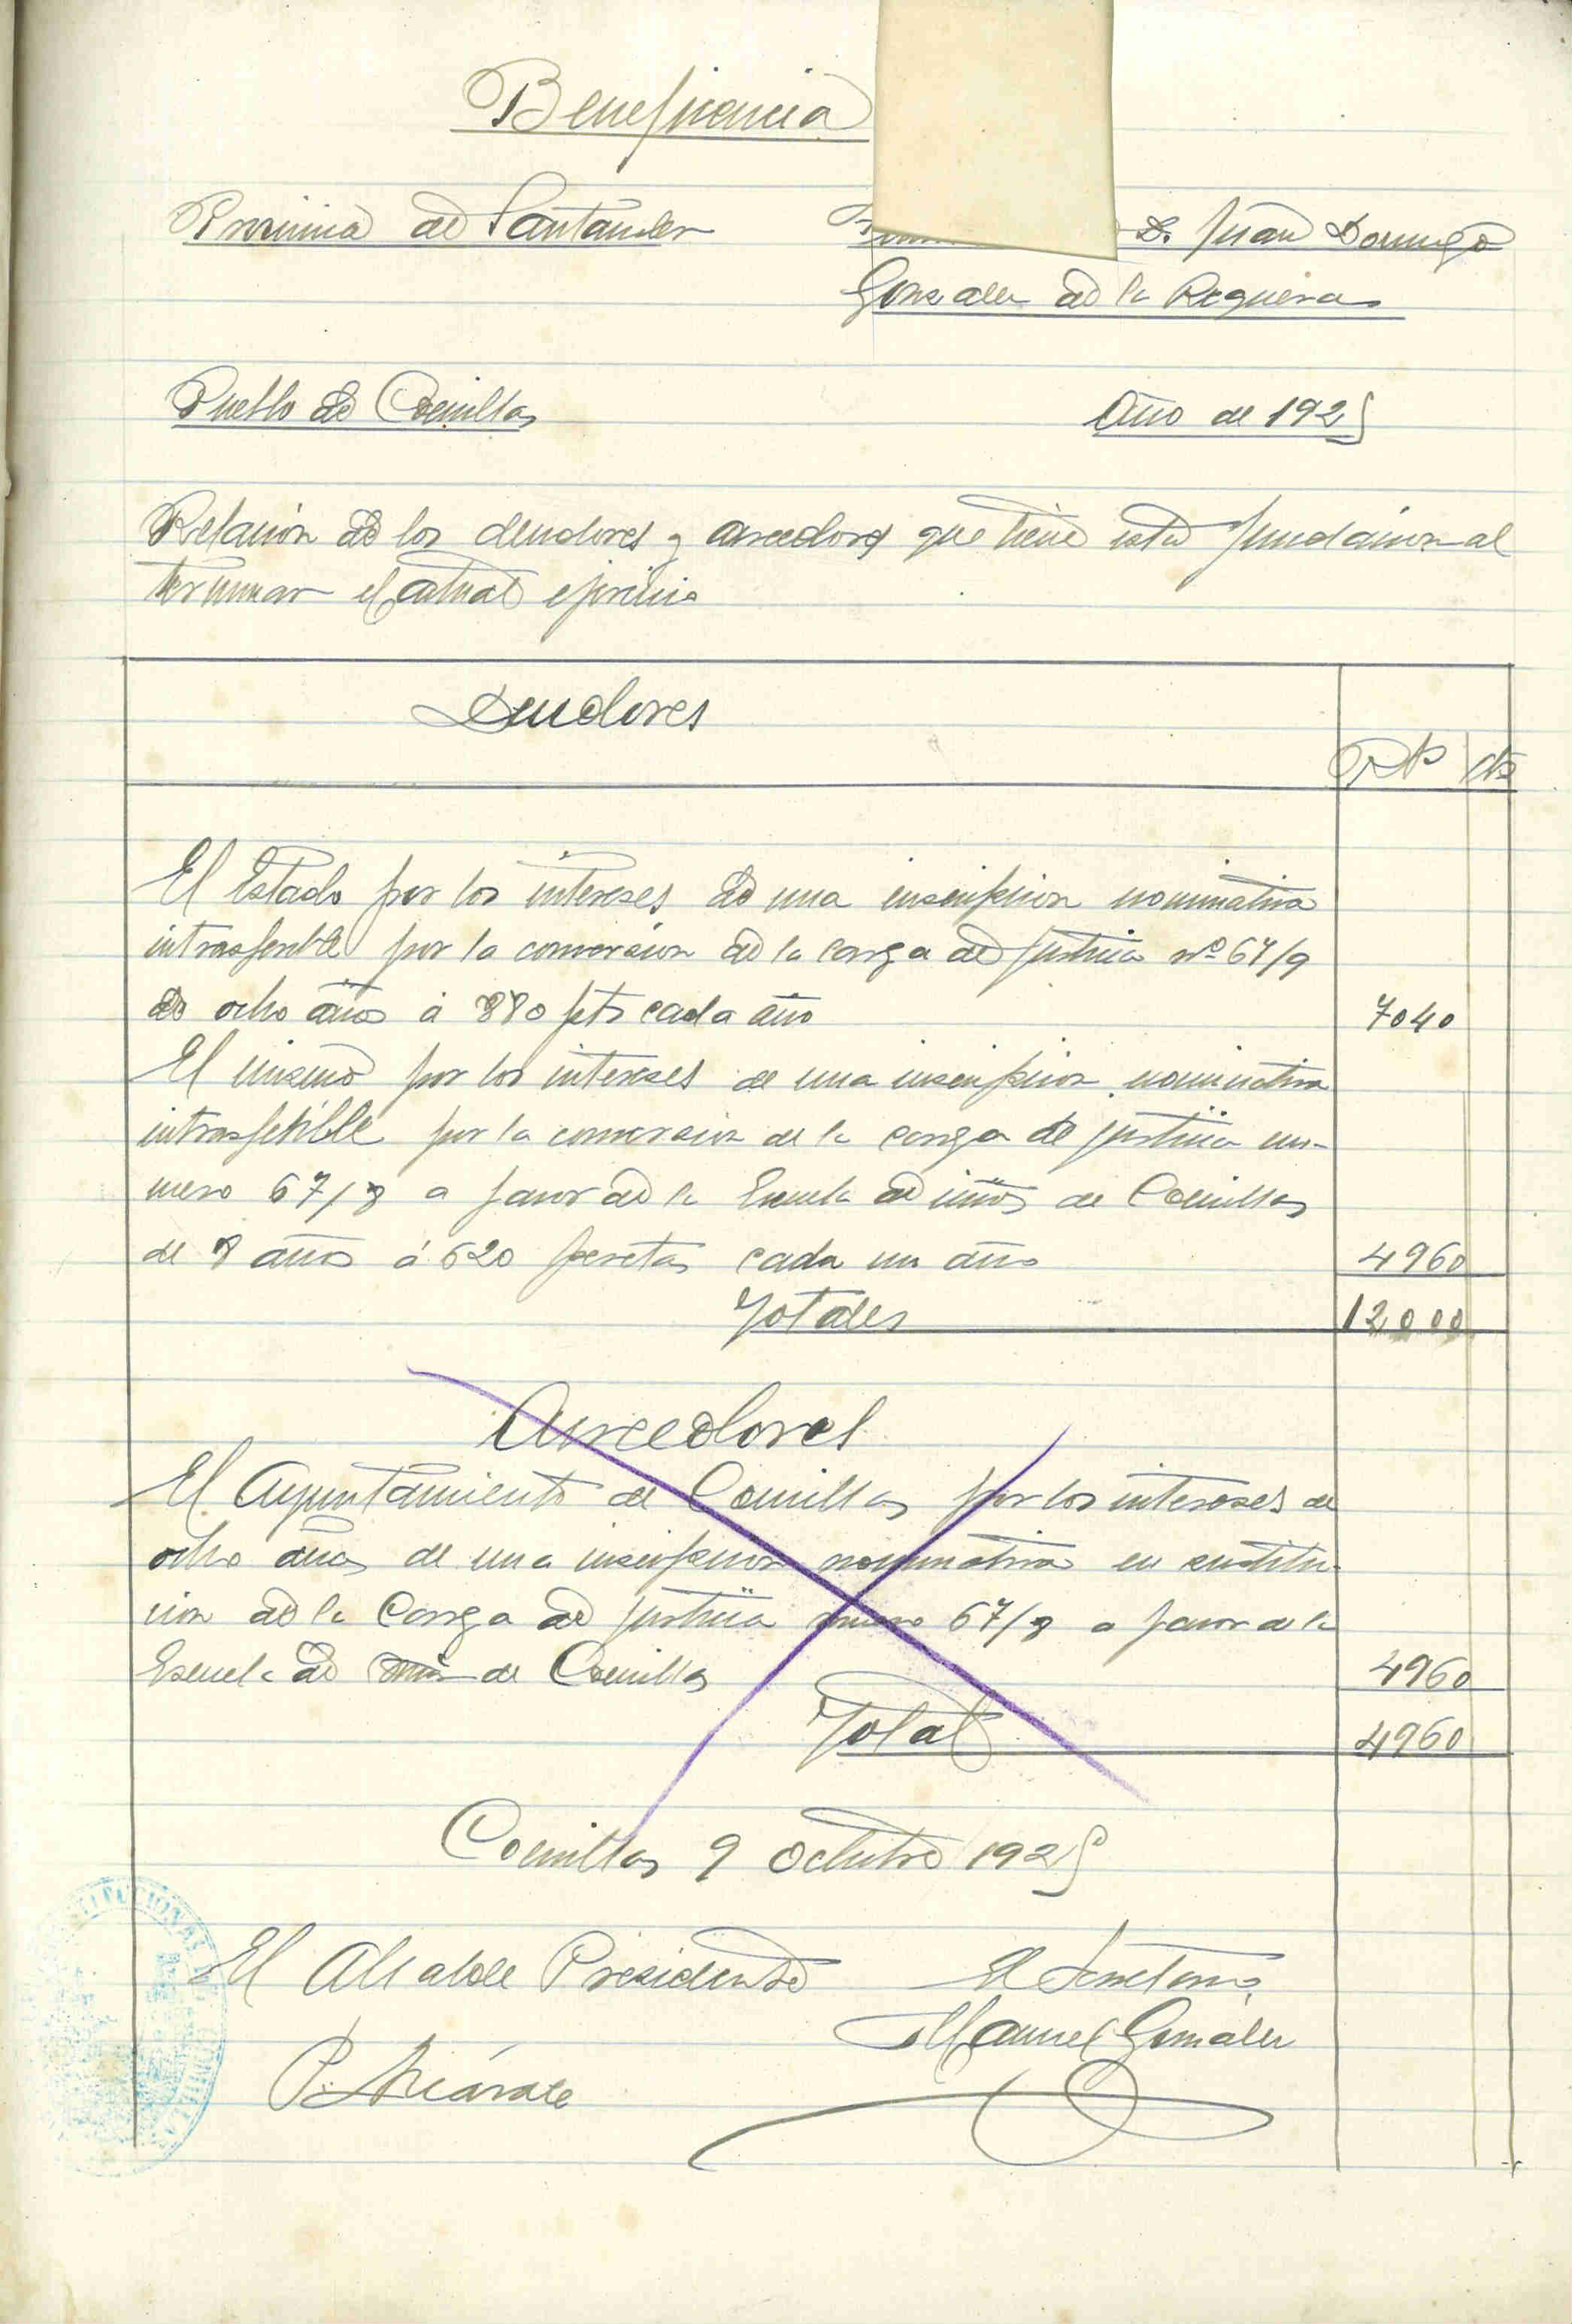 Beneficencia
Provincia de Santander
D. Juan Domingo
Gonzalez de la Reguera
Pueblo de Comillas
Año de 1925
Relacion de los deudores y acreedores que tiene esta fundacion al
terminar el actual ejercicio
Deudores
Pts cts
El Estado por los intereses de una inscripcion nominativa
intrasferible por la conversion de la carga de justicia nº 67/9
de ocho años á 880 pts cada año 7040
El mismo por los intereses de una inscripcion nominativa
intrasferible por la conversion de la carga de justicia nu-
mero 67/8 a favor de la Escuela de niños de Comillas
de 8 años á 620 pesetas cada un año 4960
Totales 12000
Acreedores
El Ayuntamiento de Comillas por los intereses de
ocho años de una inscripcion nominativa en sustitu-
cion de la Carga de justicia numero 67/8 a favor de la
Escuela de de Comillas 4960
Total 4960
Comillas 9 Octubre 1925
El Alcalde Presidente
El Secretario
Manuel Gonzalez